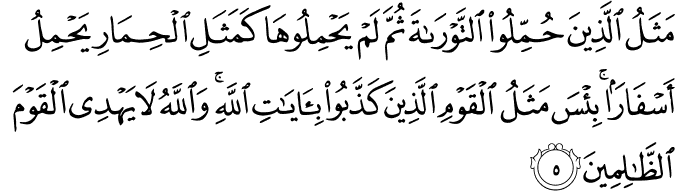 مَثَلُ ٱلَّذِينَ حُمِّلُوا۟ ٱلتَّوْرَىٰةَ ثُمَّ لَمْ يَحْمِلُوهَا كَمَثَلِ ٱلْحِمَارِ يَحْمِلُ
أَسْفَارًۢا ۚ بِئْسَ مَثَلُ ٱلْقَوْمِ ٱلَّذِينَ كَذَّبُوا۟ بِـَٔايَـٰتِ ٱللَّهِ ۚ وَٱللَّهُ لَا يَهْدِى ٱلْقَوْمَ
ٱلظَّـٰلِمِينَ ٥